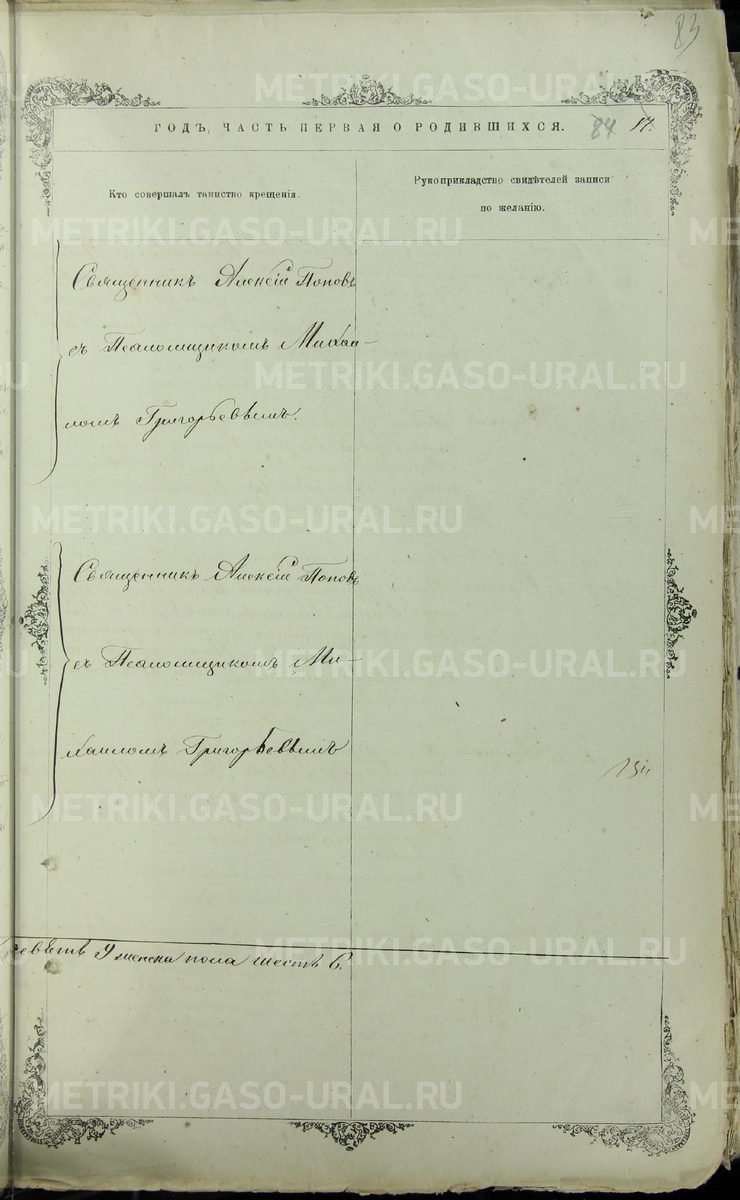 83
ГОДЪ, ЧАСТЬ ПЕРВАЯ О РОДИВШИХСЯ. 84 17.
Кто совершалъ таинство крещенія.
Рукоприкладство свидѣтелей записи
по желанію.
Священникъ Алексій Поповъ
съ Псаломщикомъ Михаи-
ломъ Григорьевымъ.
Священникъ Алексій Поповъ
съ Псаломщикомъ Ми-
хаиломъ Григорьевымъ
девять 9 женска пола шесть 6.
METRIKI.GASO-URAL.RU